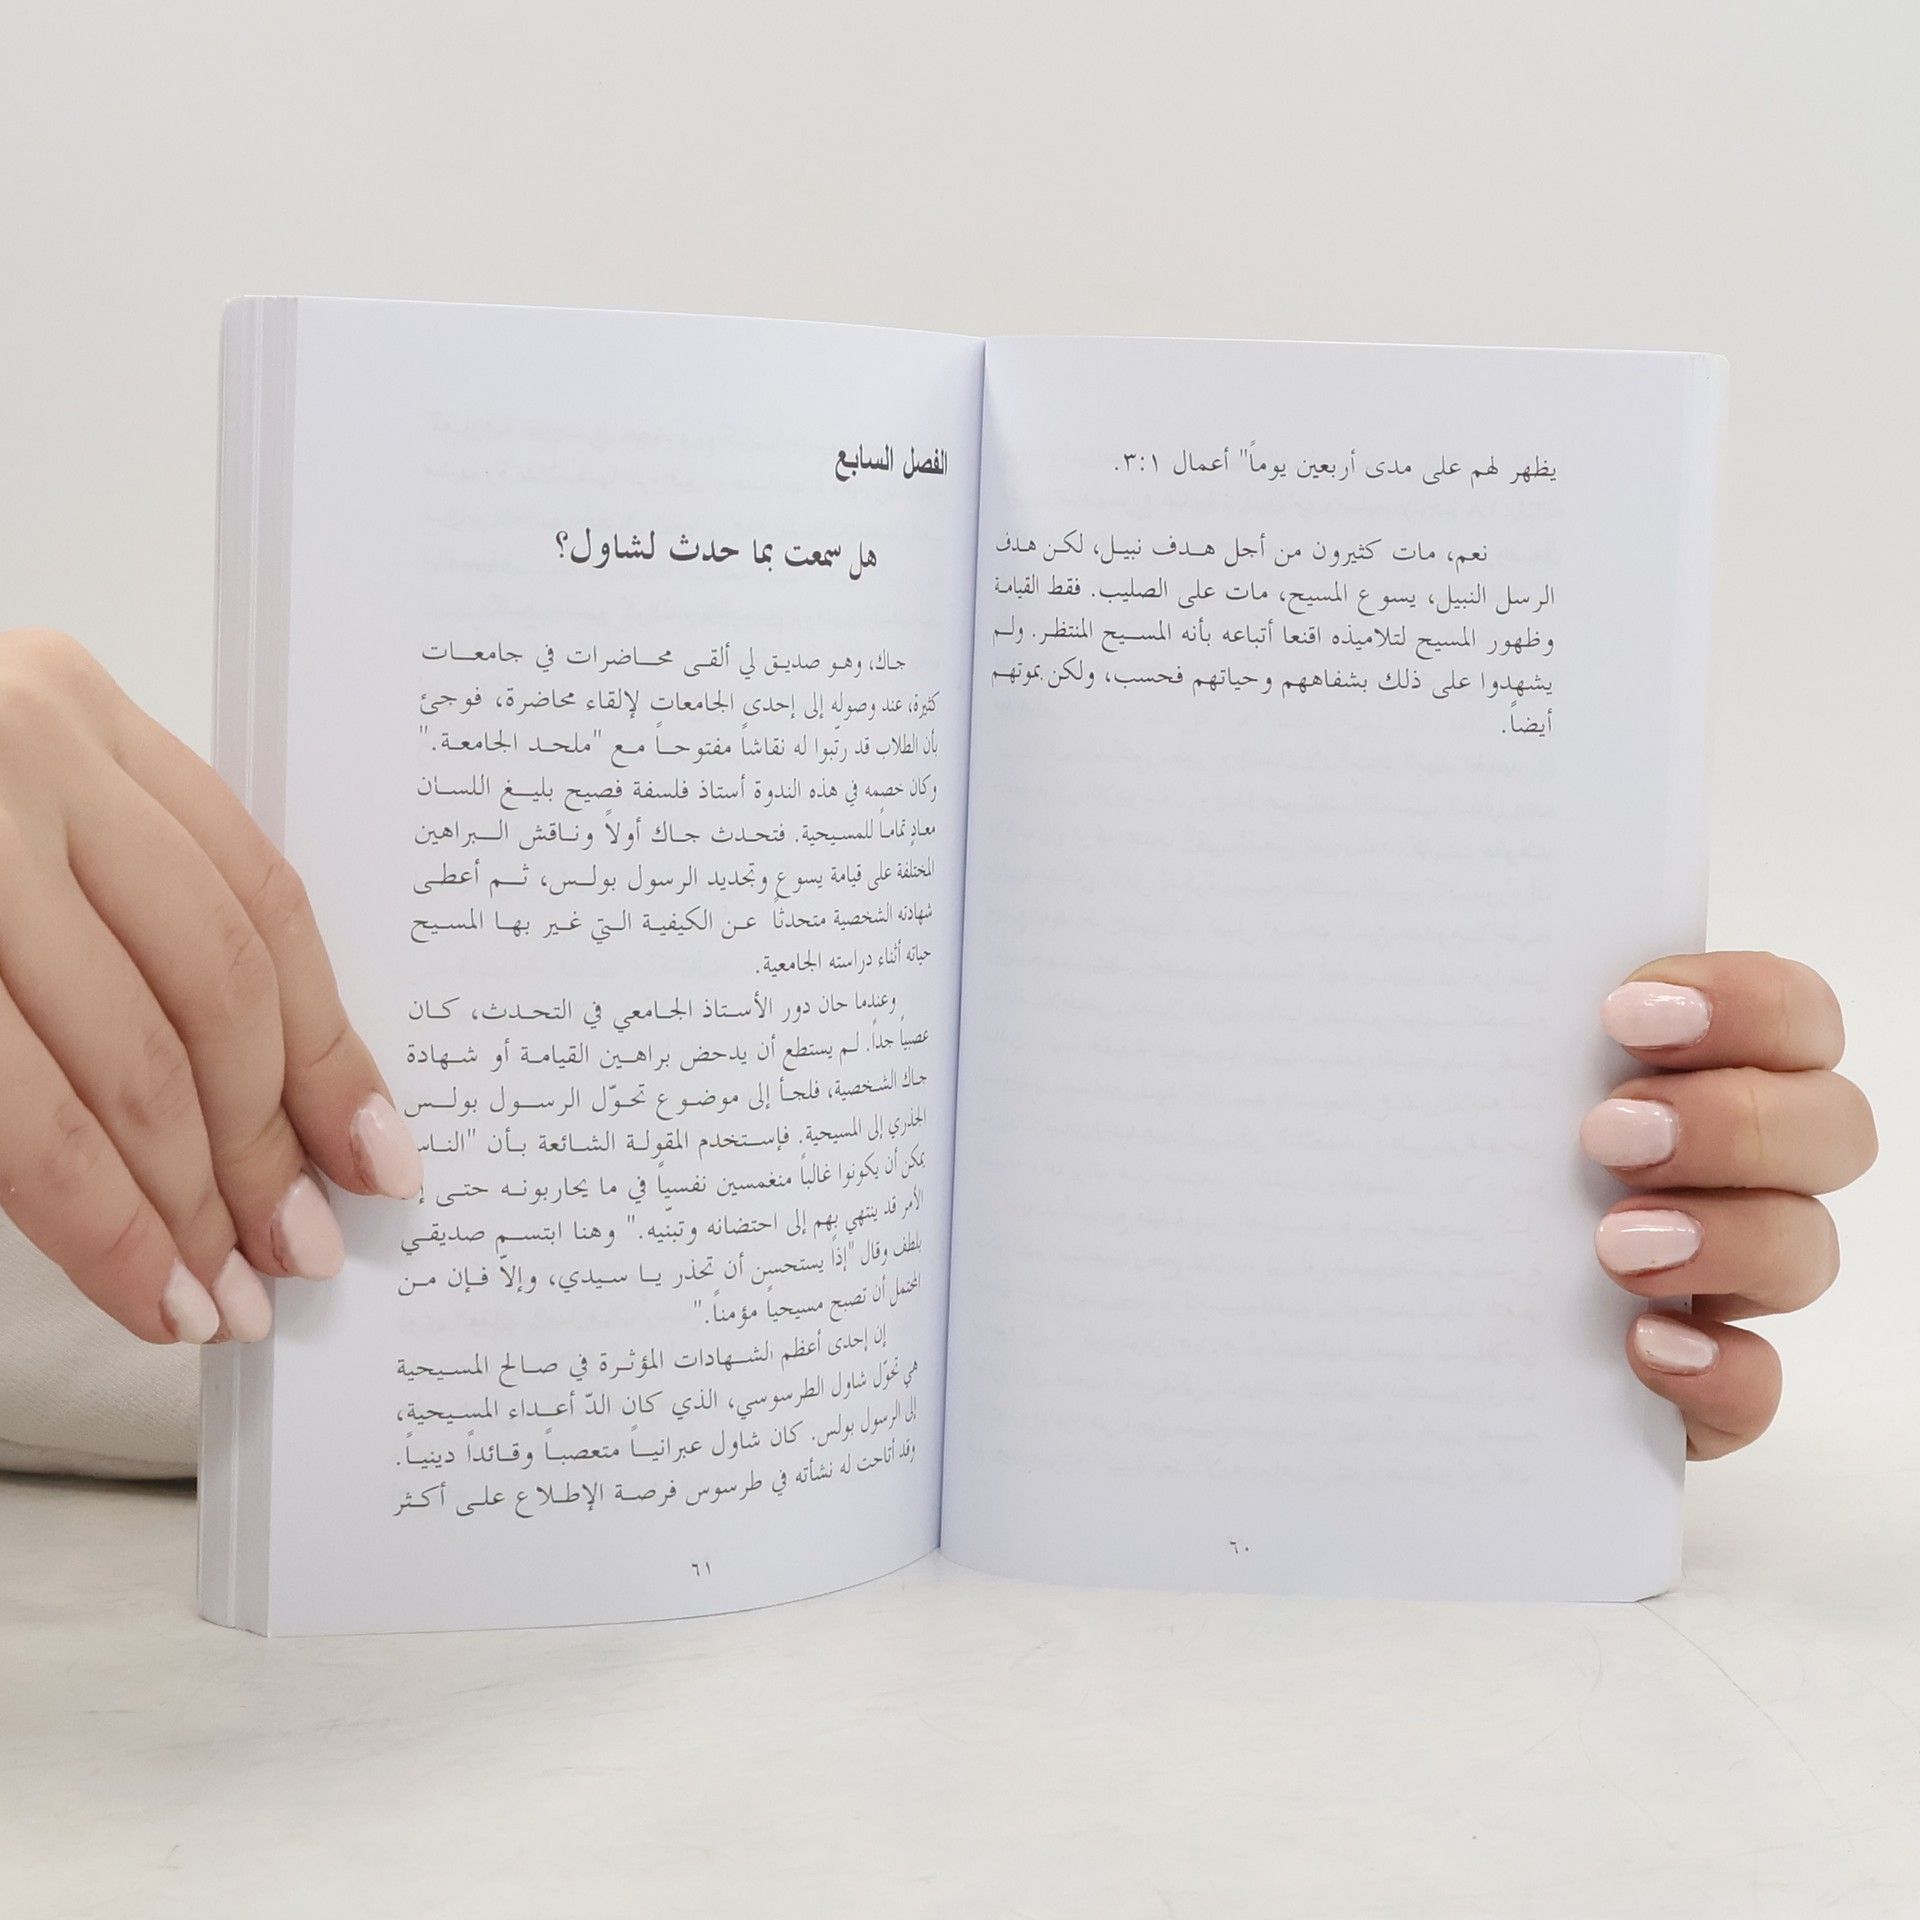 يظهر لهم على مدى أربعين يوماً" أعمال ٣:١.
نعم، مات كثيرون من أجل هدف نبيل، لكن هدف
الرسل النبيل، يسوع المسيح، مات على الصليب. فقط القيامة
وظهور المسيح لتلاميذه اقنعا أتباعه بأنه المسيح المنتظر. ولم
يشهدوا على ذلك بشفاههم وحياتهم فحسب، ولكن بموتهم
أيضاً.
٦٠
الفصل السابع
هل سمعت بما حدث لشاول؟
جاك، وهو صديق لي ألقى محاضرات في جامعات
كثيرة، عند وصوله إلى إحدى الجامعات لإلقاء محاضرة، فوجئ
بأن الطلاب قد رتّبوا له نقاشاً مفتوحاً مع "ملحد الجامعة."
وكان خصمه في هذه الندوة أستاذ فلسفة فصيح بليغ اللسان
معادٍ تماماً للمسيحية. فتحدث جاك أولاً وناقش البراهين
المختلفة على قيامة يسوع وتجديد الرسول بولس، ثم أعطى
شهادته الشخصية متحدثاً عن الكيفية التي غير بها المسيح
حياته أثناء دراسته الجامعية.
وعندما حان دور الأستاذ الجامعي في التحدث، كان
عصبياً جداً. لم يستطع أن يدحض براهين القيامة أو شهادة
جاك الشخصية، فلجأ إلى موضوع تحوّل الرسول بولس
الجذري إلى المسيحية. فإستخدم المقولة الشائعة بأن "الناس
يمكن أن يكونوا غالباً منغمسين نفسياً في ما يحاربونه حتى
الأمر قد ينتهي بهم إلى احتضانه وتبنّيه." وهنا ابتسم صديقي
بلطف وقال "إذاً يستحسن أن تحذر يا سيدي، وإلاّ فإن من
المحتمل أن تصبح مسيحياً مؤمناً."
إن إحدى أعظم الشهادات المؤثرة في صالح المسيحية
هي تحوّل شاول الطرسوسي، الذي كان الدّ أعداء المسيحية،
إلى الرسول بولس. كان شاول عبرانياً متعصباً وقائداً دينياً.
وقد أتاحت له نشأته في طرسوس فرصة الإطلاع على أكثر
٦١